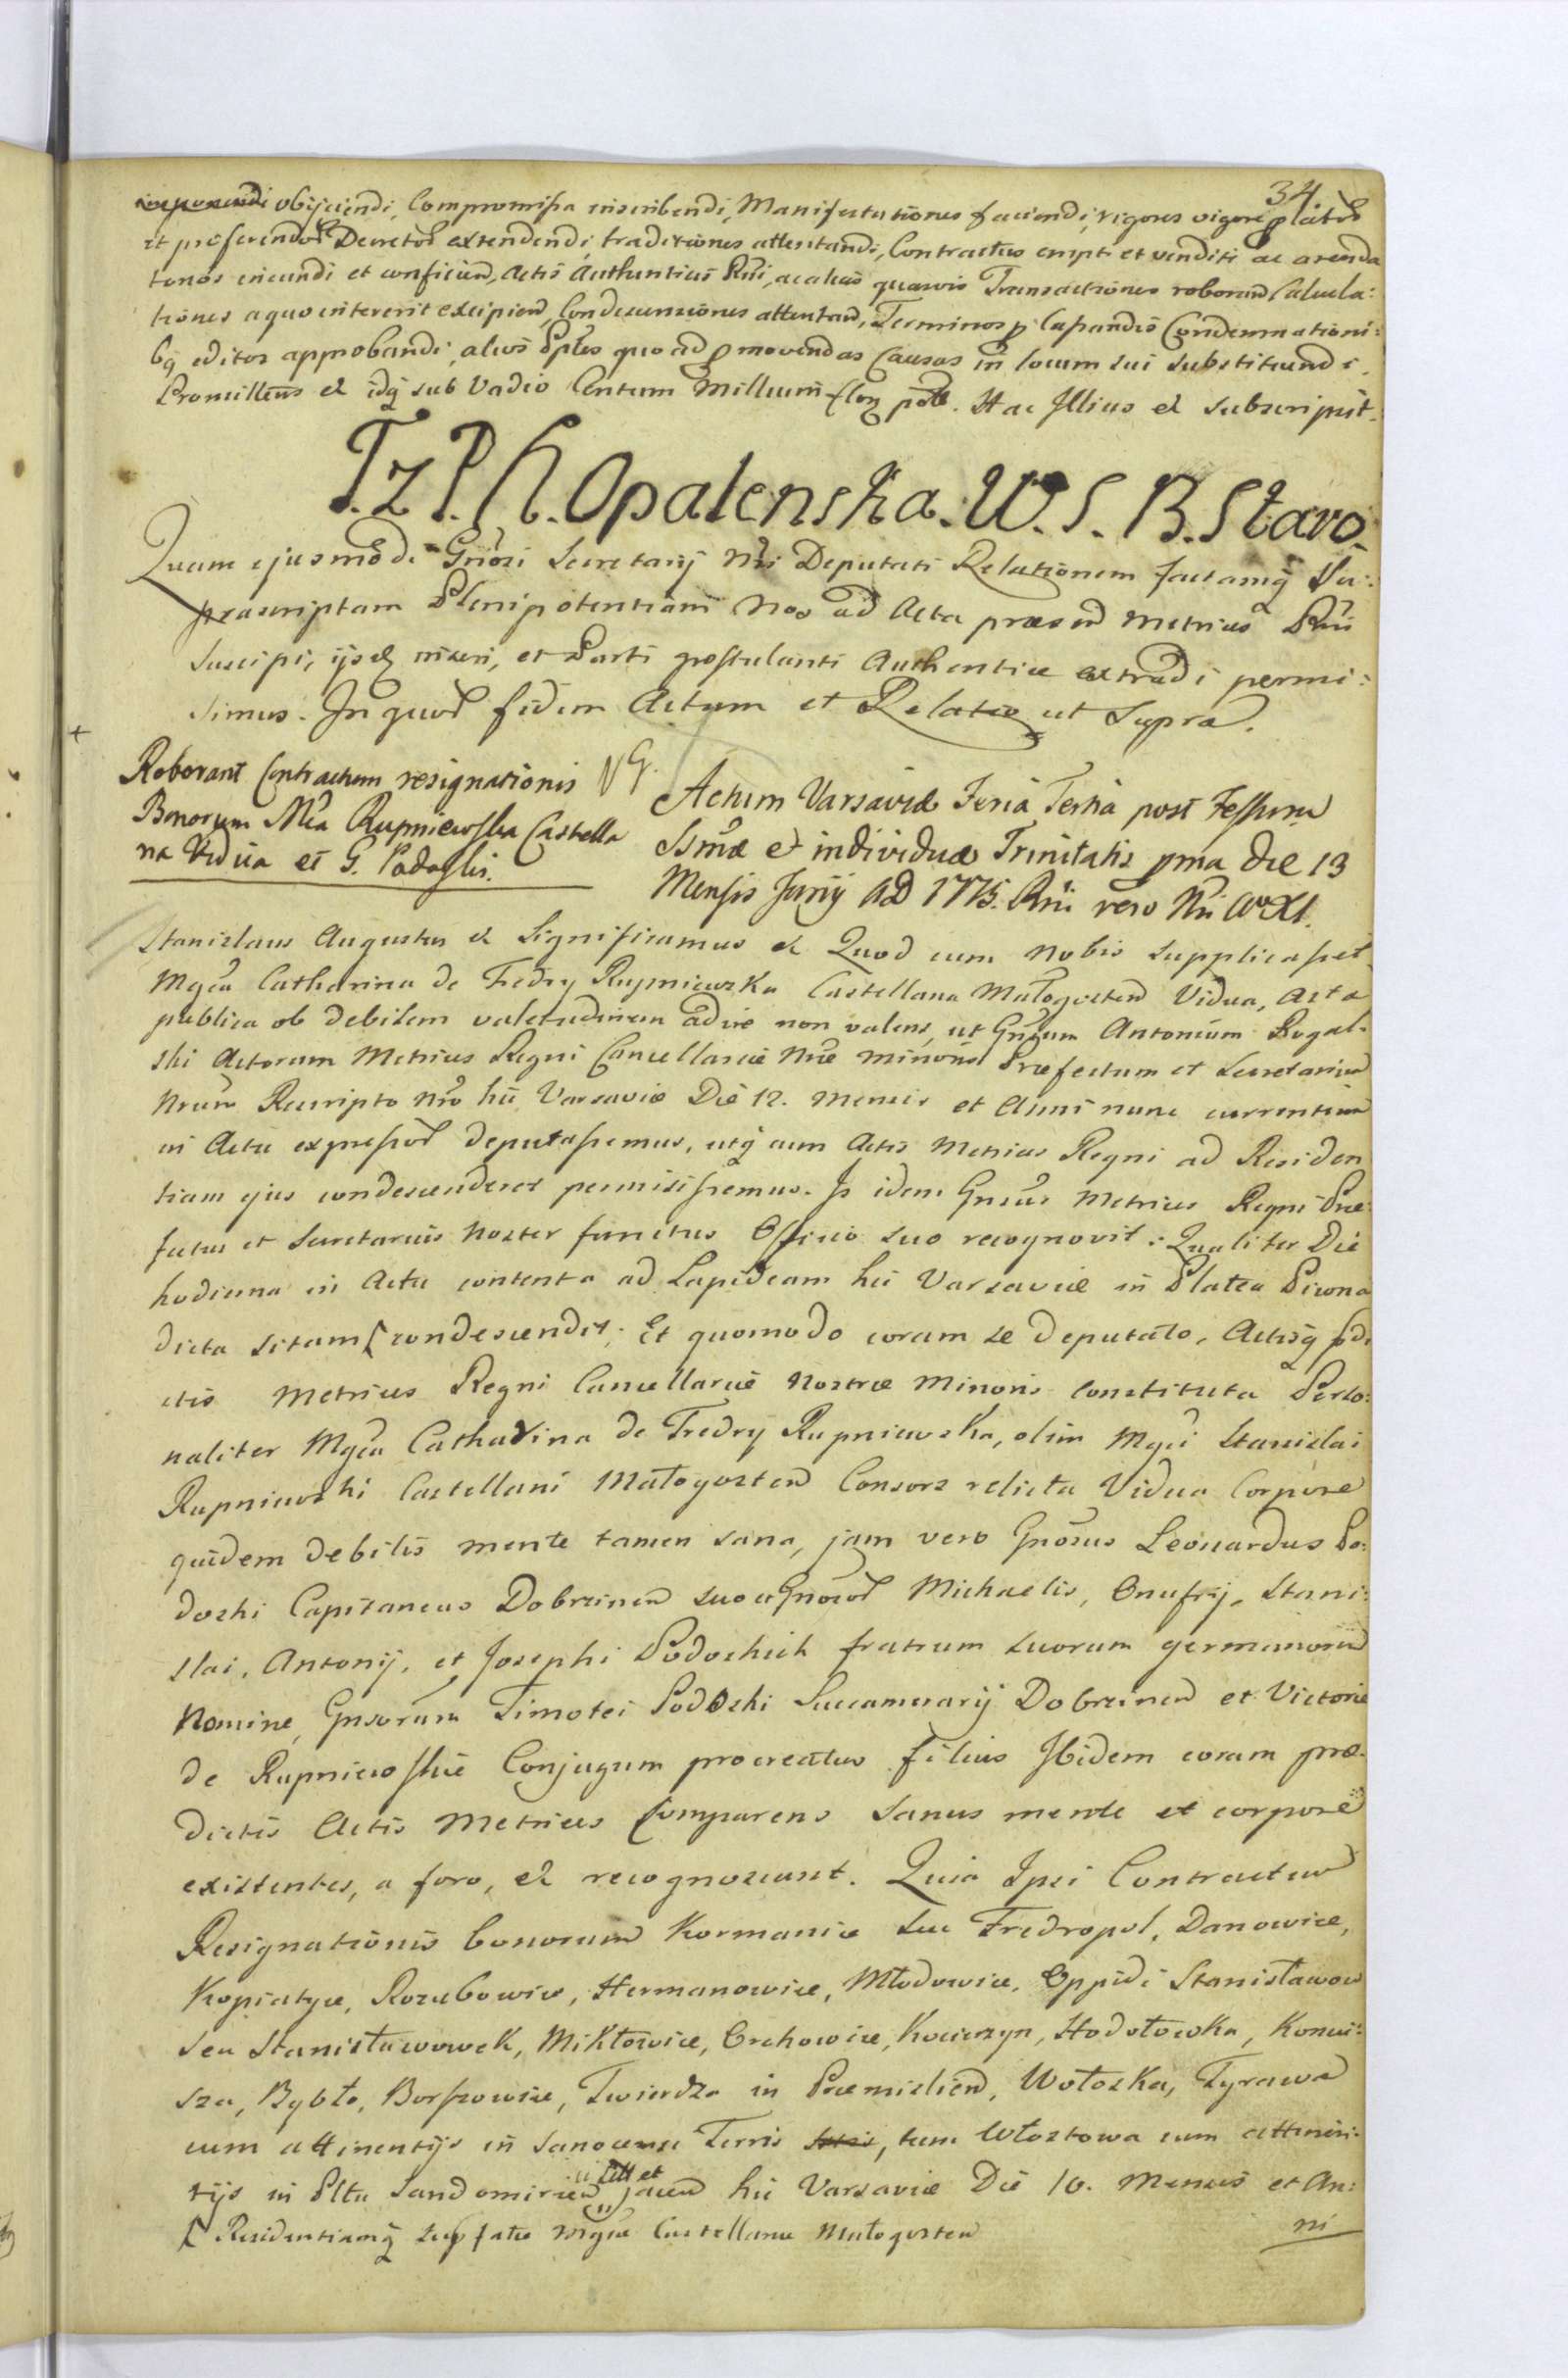 34.
obijciendi, Compromissa inscribendi, Manifestationes faciendi, rigores vigore
et proferendor Decretor extendendi, traditiones attentandi, Contractus empti et venditi ac arenda
torios ineundi et conficien, Actis Authenticis Rni, ac alias quasvis Transactiones roborand Calcula:
tiones a quo intererit excipiend, Condescensiones attentand, Terminos p Lapsandis Condemnationi:
bq editos approbandi, alios Ptes quo ad pmovendas Causas in locum sui substituendi.
Promittens & idq sub Vadio Centum Millium flor poll. Hac Illius & subscripsit.
T. z P. H. Opalenska. W. S. B. Staro.
Quam ejusmodi Gnosi Secretarij Nri Deputati Relationem factamq Su:
prascriptam Plenipotentiam Nos ad Acta præsend Metrices Rni
Suscipi, ijsq inseri, et Parti postulanti Authentice extradi permi:
simus. In quor fidem Actum et Relatio ut Supra.
Roborant Contractum resignationis
Bonorum Mca Rupniewska Castella
na Vidua et G. Podoski.
NG.
Actum Varsaviæ Feria Tertia post Festum
Ssmæ et individuæ Trinitatis pma die 13
Mensis Junij AD 1775. Rni vero Nri Ao XI.
Stanislaus Augustus & Significamus & Quod cum Nobis supplicasset
Mgca Catharina de Fredry Rupniewska Castellana Małogosten Vidua, Acta
publica ob debilem valetudinem adire non valens, ut Gnsum Antonium Rogal:
ski Actorum Metrices Regni Cancellariæ Nræ minoris Præfectum et Secretarium
Nrum Rescripto Nro hic Varsaviæ Die 12. mensis et Anni nunc currentium
in Actu expressor deputassemus, utq cum Actis Metrices Regni ad Residen
tiam ejus condescenderet permisissemus. Is idem Gnsus Metrices Regni Præ:
fectus et Secretarius Noster functus Officio suo recognovit: Qualiter Die
hodierna in Actu contenta ad Lapideam hic Varsaviæ in Platea Piwna
dicta sitam [ condescendit; Et quomodo coram se deputato, Actisq pdi
ctis Metrices Regni Cancellariæ Nostræ Minoris constituta Perso:
naliter Mgca Catharina de Fredry Rupniewska, olim Mgci Stanislai
Rupniewski Castellani Małogosten Consors relicta Vidua Corpore
quidem debilis mente tamen sana, jam vero Gnosus Leonardus Po:
doski Capitaneus Dobrzinen suo et Gnosor Michaelis, Onufrij, Stani:
slai, Antonij, et Josephi Podoskich fratrum suorum germanorum
Nomine, Gnsorum Timotei Podoski Succamerarij Dobrzinen et Victoriæ
de Rupniewskie Conjugum procreatus filius Ibidem coram præ:
dictis Actis Metrices Comparens Sanus mente et corpore
existentes, a foro, & recognoscunt. Quia Ipsi Contractum
Resignationis bonorum Kormanice seu Fredropol, Danowice,
Kopiatyce, Rozubowice, Hermanowice, Młodowice, Oppidi Stanisławow
seu Stanisławowek, Mikłowice, Orchowice, Kocierzyn, Hodołowka, Koniu:
sza, Bybło, Borszowice, Twierdza in Præmislien, Wołoska, Tyrawa
cum attinentijs in Sanocensi Terris, tum Włostowa cum attinen:
tijs in Pltu Sandomirien sitt et jacen hic Varsaviæ Die 10. Mensis et An:
ni
[ Residentiamq supfatæ Mgcæ Castellanæ Małogosten